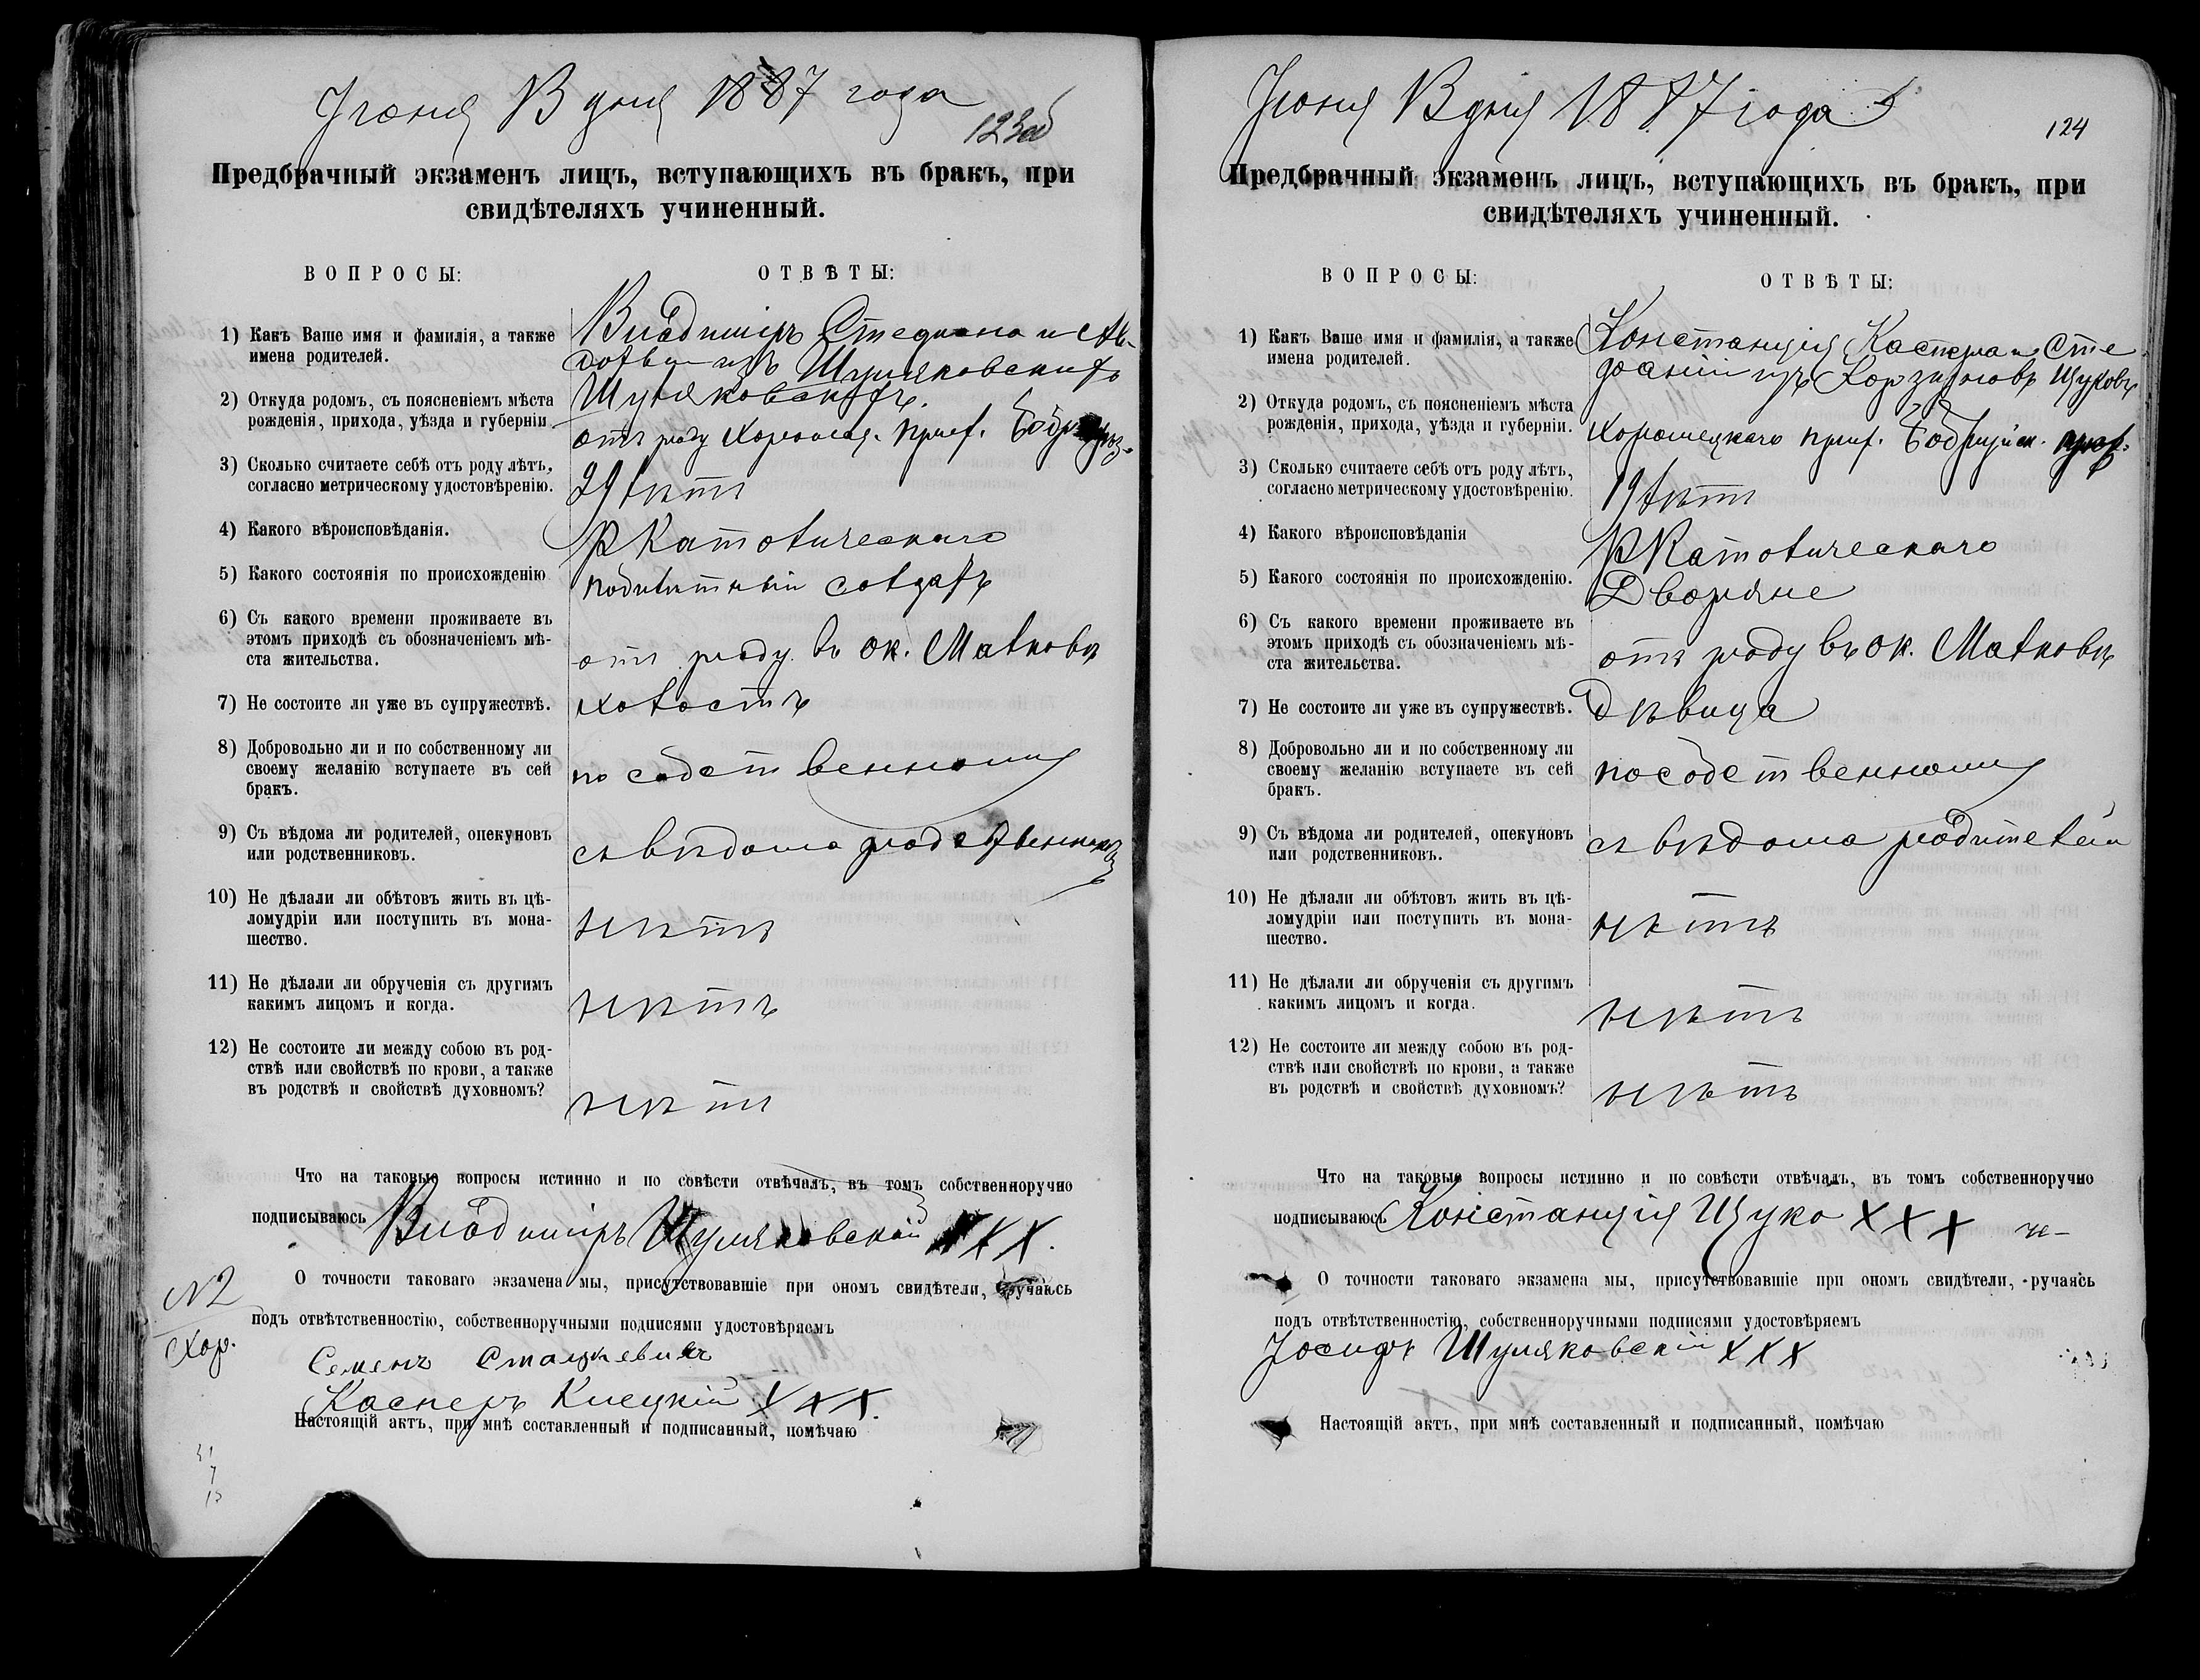 Іюня 13 дня 1887 года
123об
Предбрачный экзаменъ лицъ, вступающихъ въ бракъ, при
свидѣтеляхъ учиненный.
ВОПРОСЫ:
ОТВѢТЫ:
1) Какъ Ваше имя и фамилія, а также
имена родителей.
Владиміръ Стефана и
изъ Шуляковскихъ
Шуляковскихъ.
2) Откуда родомъ, съ поясненіемъ мѣста
рожденія, прихода, уѣзда и губерніи.
отъ роду прих.
3) Сколько считаете себѣ отъ роду лѣтъ,
согласно метрическому удостовѣренію.
29 лѣтъ
4) Какого вѣроисповѣданія.
РКатолическаго
5) Какого состоянія по происхожденію
солдатъ
6) Съ какого времени проживаете въ
этомъ приходѣ съ обозначеніемъ мѣ-
ста жительства.
отъ роду въ ок. Малковъ
7) Не состоите ли уже въ супружествѣ.
холостъ
8) Добровольно ли и по собственному ли
своему желанію вступаете въ сей
бракъ.
по собственному
9) Съ вѣдома ли родителей, опекуновъ
или родственниковъ.
съ вѣдома родственниковъ
10) Не дѣлали ли обѣтовъ жить въ цѣ-
ломудріи или поступить въ мона-
шество.
нѣтъ
11) Не дѣлали ли обрученія съ другимъ
какимъ лицомъ и когда.
нѣтъ
12) Не состоите ли между собою въ род-
ствѣ или свойствѣ по крови, а также
въ родствѣ и свойствѣ духовномъ?
нѣтъ
Что на таковые вопросы истинно и по совѣсти отвѣчалъ, въ томъ собственноручно
подписываюсь Владиміръ Шуляковскій ХХХ.
О точности таковаго экзамена мы, присутствовавшіе при ономъ свидѣтели, ручаясь
подъ отвѣтственностію, собственноручными подписями удостовѣряемъ
N2
Хор.
Семенъ Сташкевичъ
Касперъ Клецкій ХХХ.
Настоящій актъ, при мнѣ составленный и подписанный, помѣчаю
Іюня 13 дня 1887 года
124
Предбрачный экзаменъ лицъ, вступающихъ въ бракъ, при
свидѣтеляхъ учиненный.
ВОПРОСЫ:
ОТВѢТЫ:
1) Какъ Ваше имя и фамилія, а также
имена родителей.
Констанція Каспера и Сте
фаніи изъ Щуковъ
2) Откуда родомъ, съ поясненіемъ мѣста
рожденія, прихода, уѣзда и губерніи.
прих. Бобруйск.
3) Сколько считаете себѣ отъ роду лѣтъ,
согласно метрическому удостовѣренію.
19 лѣтъ
4) Какого вѣроисповѣданія
РКатолическаго
5) Какого состоянія по происхожденію.
Дворяне
6) Съ какого времени проживаете въ
этомъ приходѣ съ обозначеніемъ мѣ-
ста жительства.
отъ роду въ ок. Малковъ
7) Не состоите ли уже въ супружествѣ.
дѣвица
8) Добровольно ли и по собственному ли
своему желанію вступаете въ сей
бракъ.
по собственному
9) Съ вѣдома ли родителей, опекуновъ
или родственниковъ.
съ вѣдома родителей
10) Не дѣлали ли обѣтовъ жить въ цѣ-
ломудріи или поступить въ мона-
шество.
нѣтъ
11) Не дѣлали ли обрученія съ другимъ
какимъ лицомъ и когда.
нѣтъ
12) Не состоите ли между собою въ род-
ствѣ или свойствѣ по крови, а также
въ родствѣ и свойствѣ духовномъ?
нѣтъ
Что на таковые вопросы истинно и по совѣсти отвѣчалъ, въ томъ собственноручно
подписываюсь Констанція Щуко ХХХ
О точности таковаго экзамена мы, присутствовавшіе при ономъ свидѣтели, ручаясь
подъ отвѣтственностію, собственноручными подписями удостовѣряемъ
Іосифъ Шуляковскій ХХХ
Настоящій актъ, при мнѣ составленный и подписанный, помѣчаю